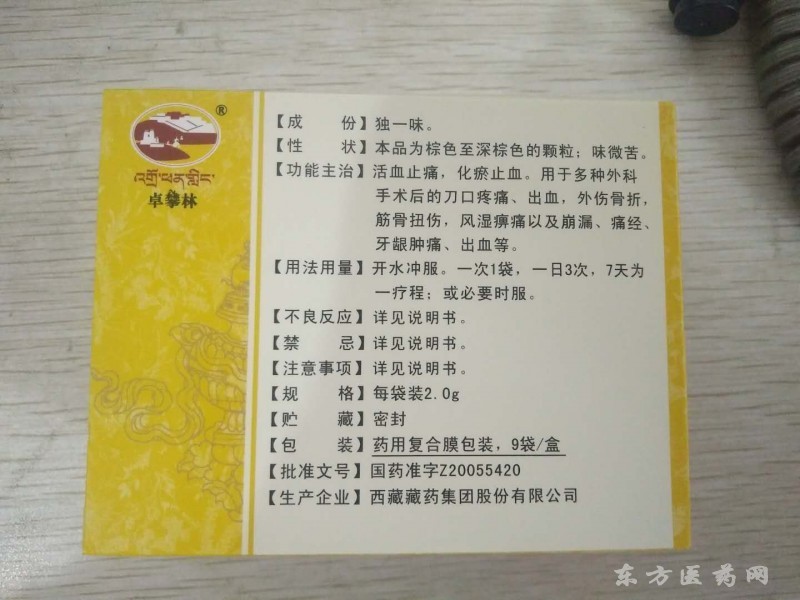 ®
卓攀林
【成份】独一味。
【性状】本品为棕色至深棕色的颗粒；味微苦。
【功能主治】活血止痛，化瘀止血。用于多种外科
手术后的刀口疼痛、出血，外伤骨折，
筋骨扭伤，风湿痹痛以及崩漏、痛经、
牙龈肿痛、出血等。
【用法用量】开水冲服。一次1袋，一日3次，7天为
一疗程；或必要时服。
【不良反应】详见说明书。
【禁忌】详见说明书。
【注意事项】详见说明书。
【规格】每袋装2.0g
【贮藏】密封
【包装】药用复合膜包装，9袋/盒
【批准文号】国药准字Z20055420
【生产企业】西藏藏药集团股份有限公司
东方医药网